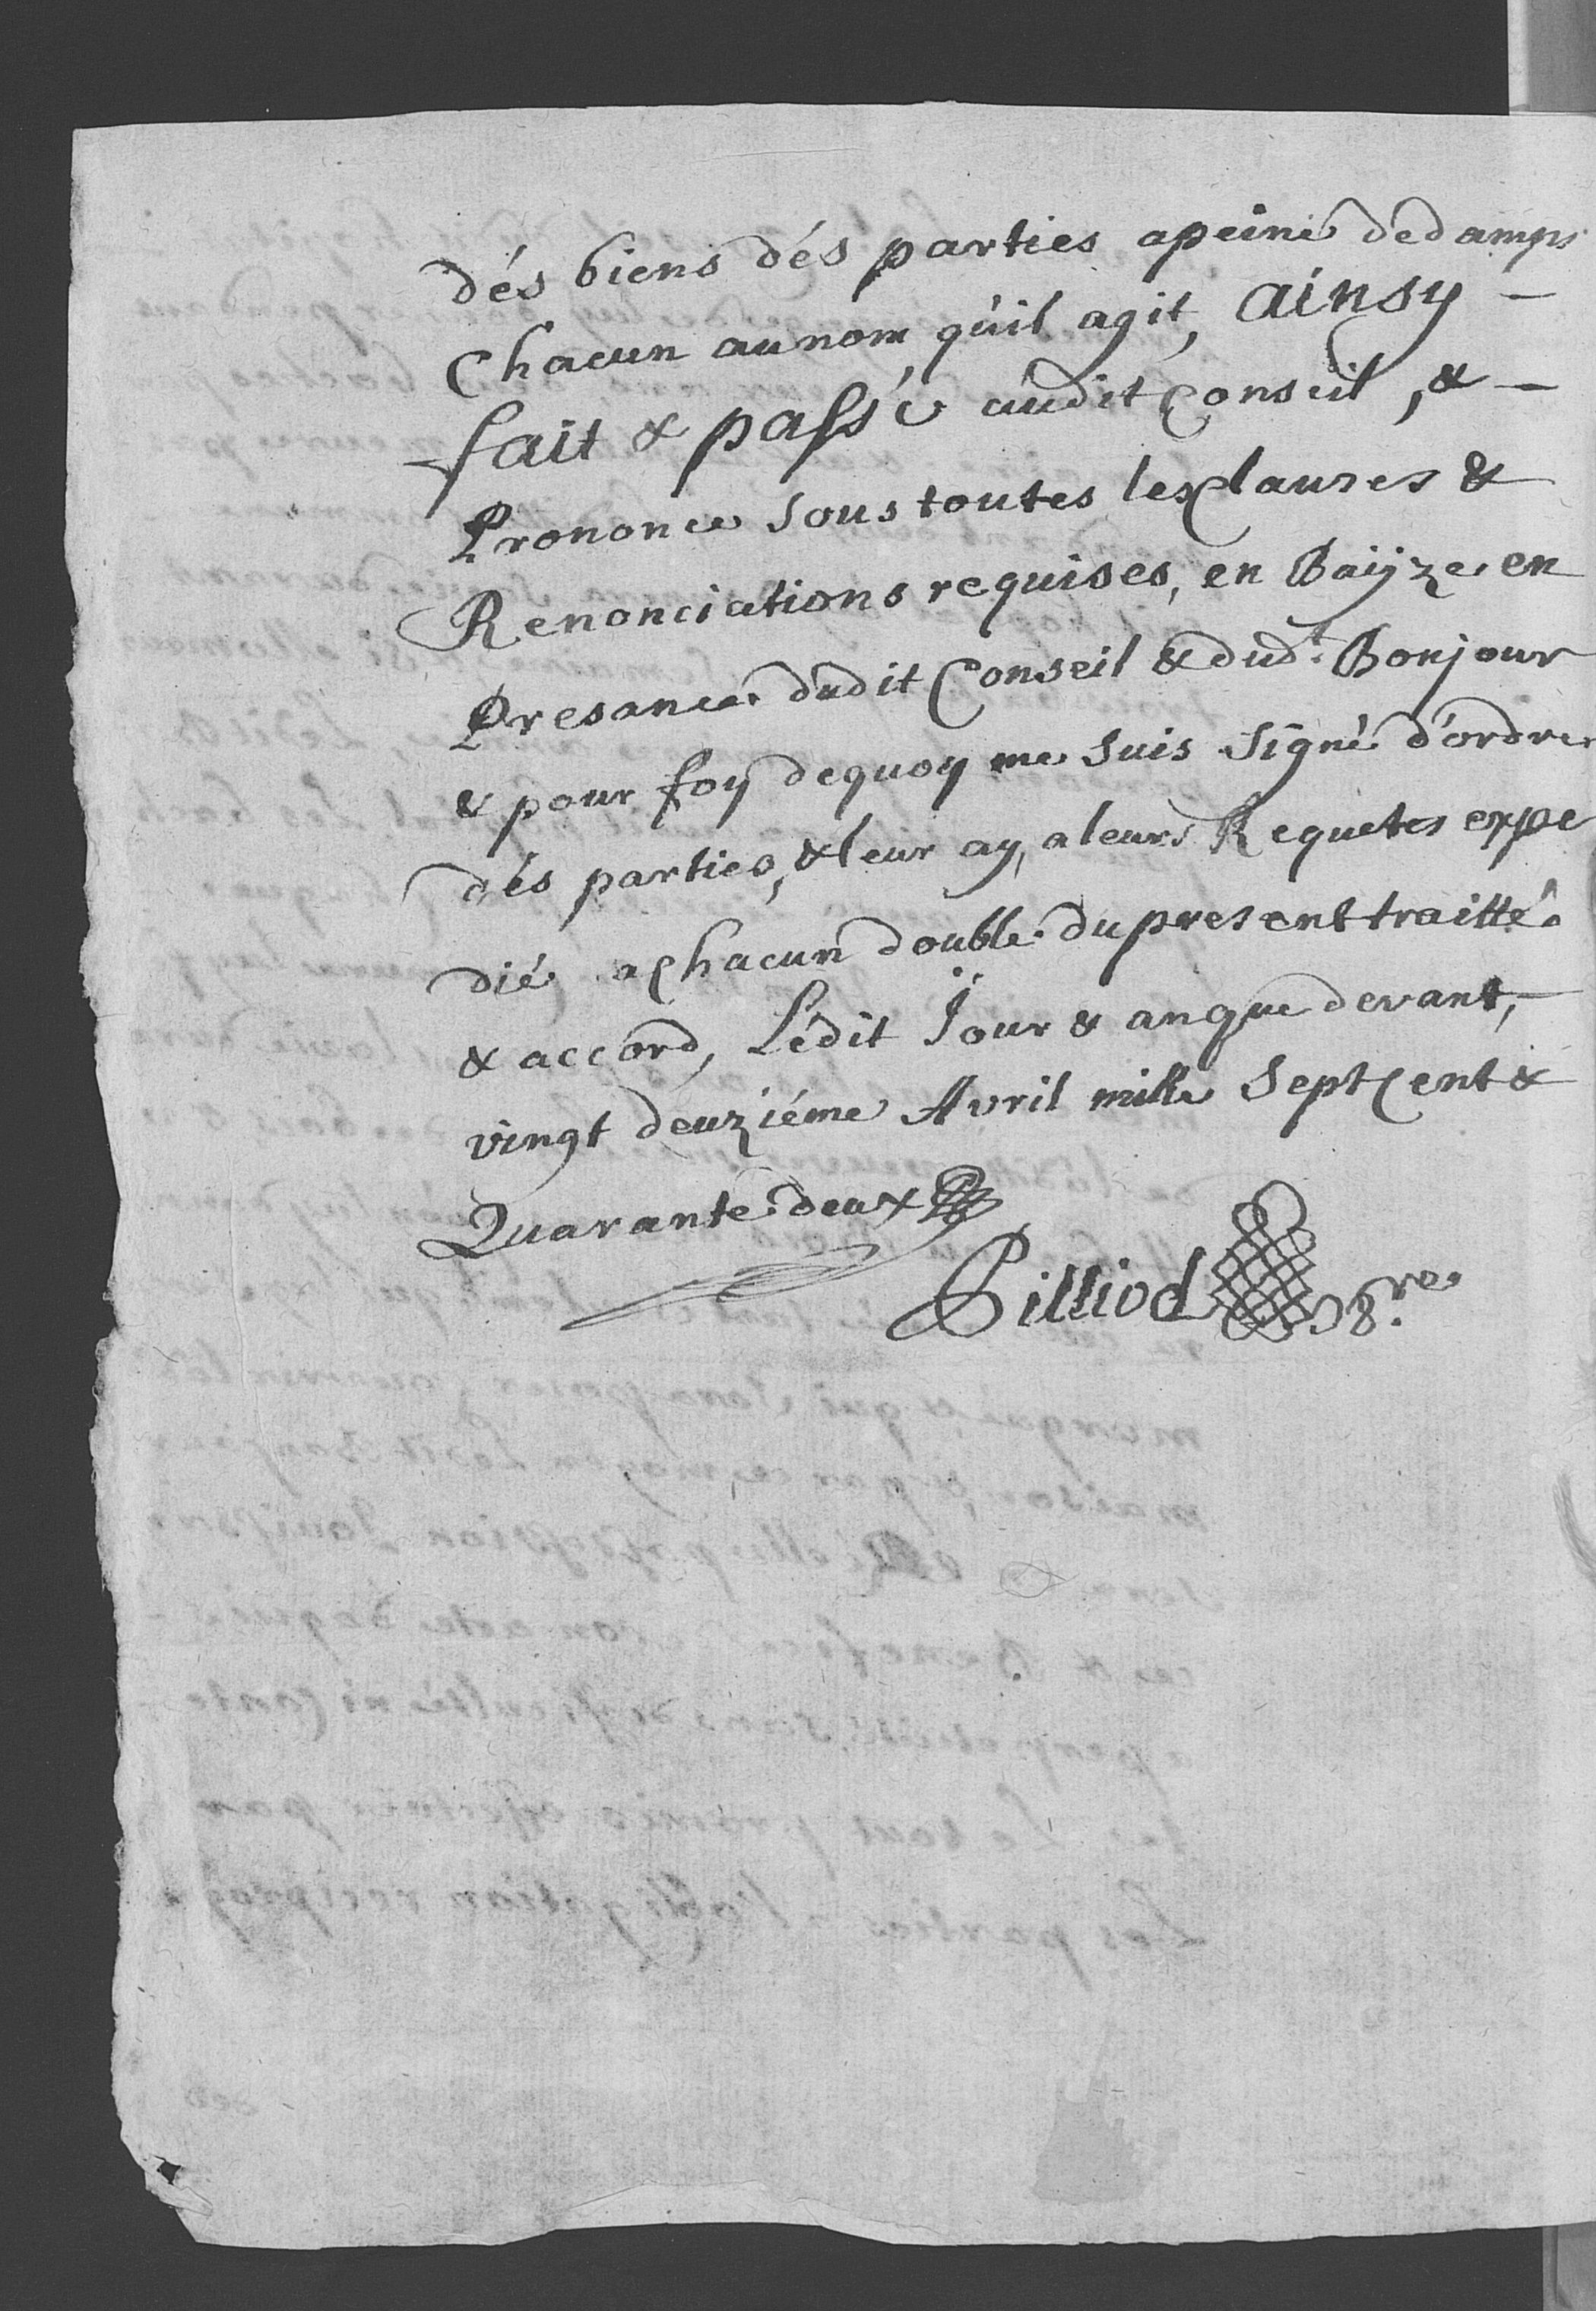 dés biens dés parties apeine dedamps
Chacun aunom qu'il agit, Ainsy –
fait & passé audit Conseil, & –
Prononcé sous toutes les Clauses &
Renonciations requises, en Baÿze en
Presance dudit Conseil & dudt. Bonjour
& pour foy dequoy me suis signé d'ordre
dés parties, & leur ay, a leurs Requetes expe
dié, a Chacun double du present traitté
& accord, Lédit Jour & an que devant, –
vingt deuziéme Avril mille Sept Cent &
Quarante deux
Pilliod